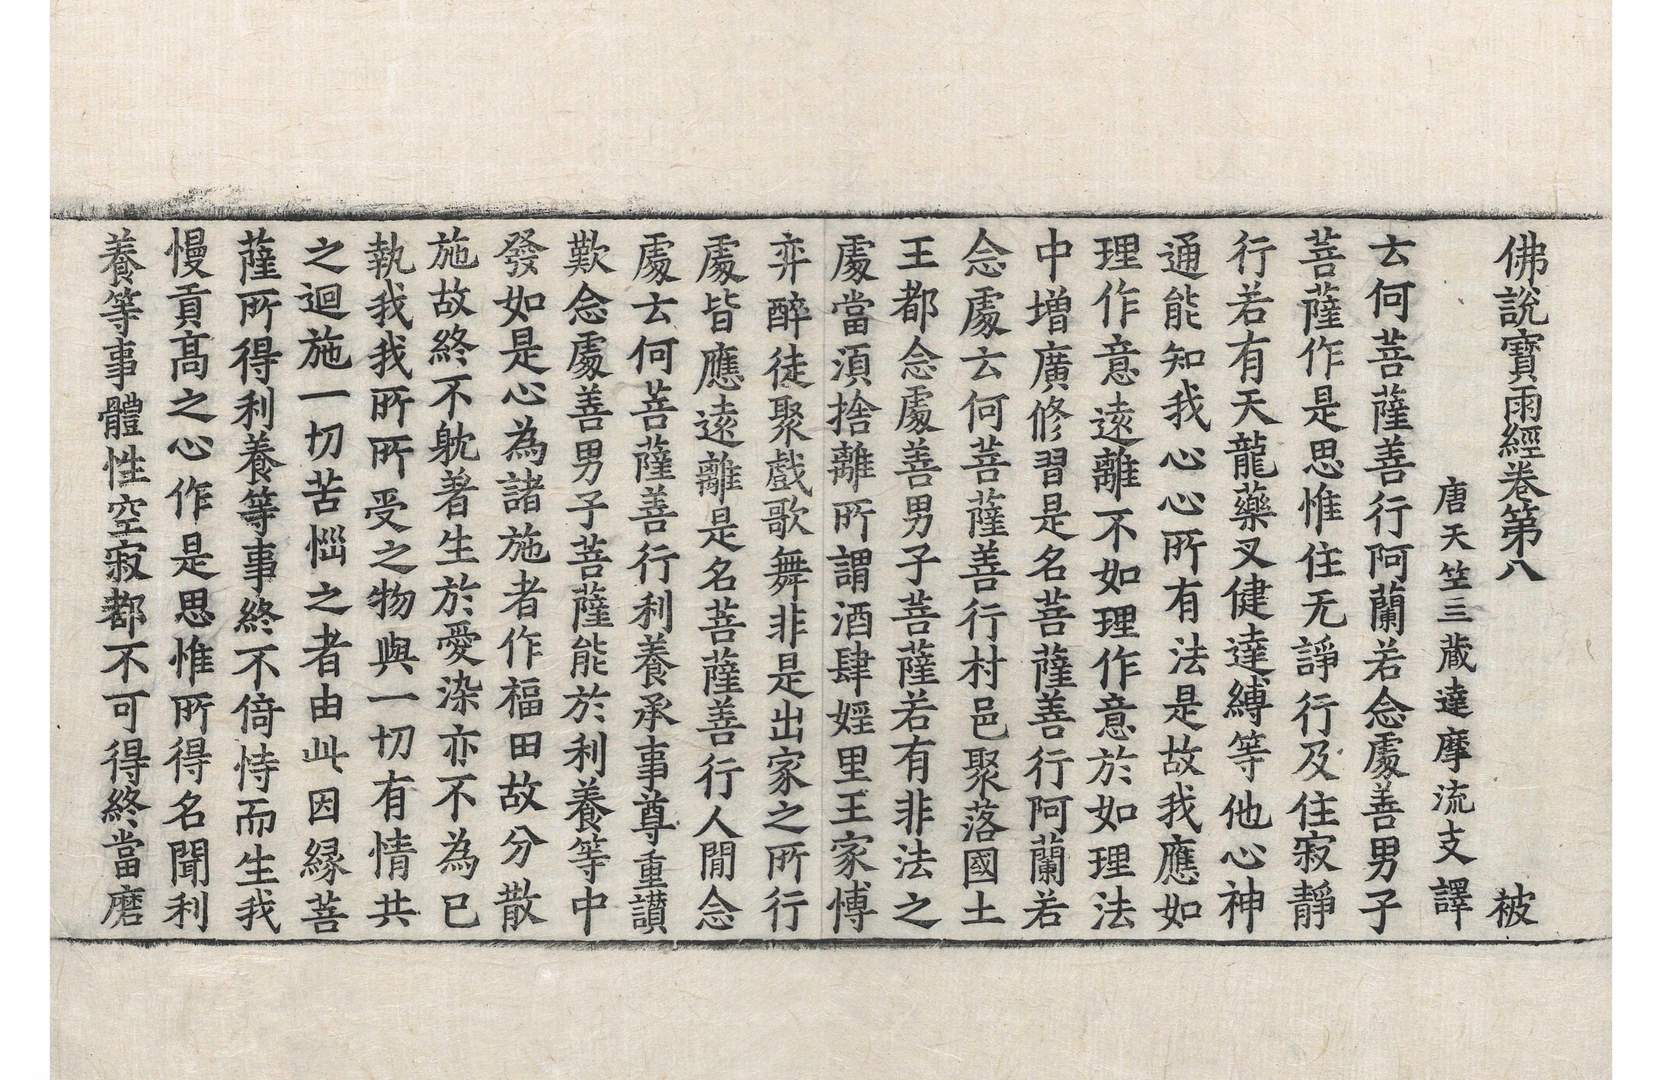 佛說寶雨經卷第八　被
唐天竺三藏達摩流支譯
云何菩薩善行阿蘭若念處善男子
菩薩作是思惟住无諍行及住寂靜
行若有天龍藥叉健達縛等他心神
通能知我心心所有法是故我應如
理作意遠離不如理作意於如理法
中增廣修習是名菩薩善行阿蘭若
念處云何菩薩善行村邑聚落國土
王都念處善男子菩薩若有非法之
處當須捨離所謂酒肆婬里王家博
弈醉徒聚戲歌舞非是出家之所行
處皆應遠離是名菩薩善行人閒念
處云何菩薩善行利養承事尊重讃
歎念處善男子菩薩能於利養等中
發如是心為諸施者作福田故分散
施故終不躭著生於愛染亦不為已
執我我所所受之物與一切有情共
之迴施一切苦惱之者由此因緣菩
薩所得利養等事終不倚恃而生我
慢貢高之心作是思惟所得名聞利
養等事體性空寂都不可得終當磨